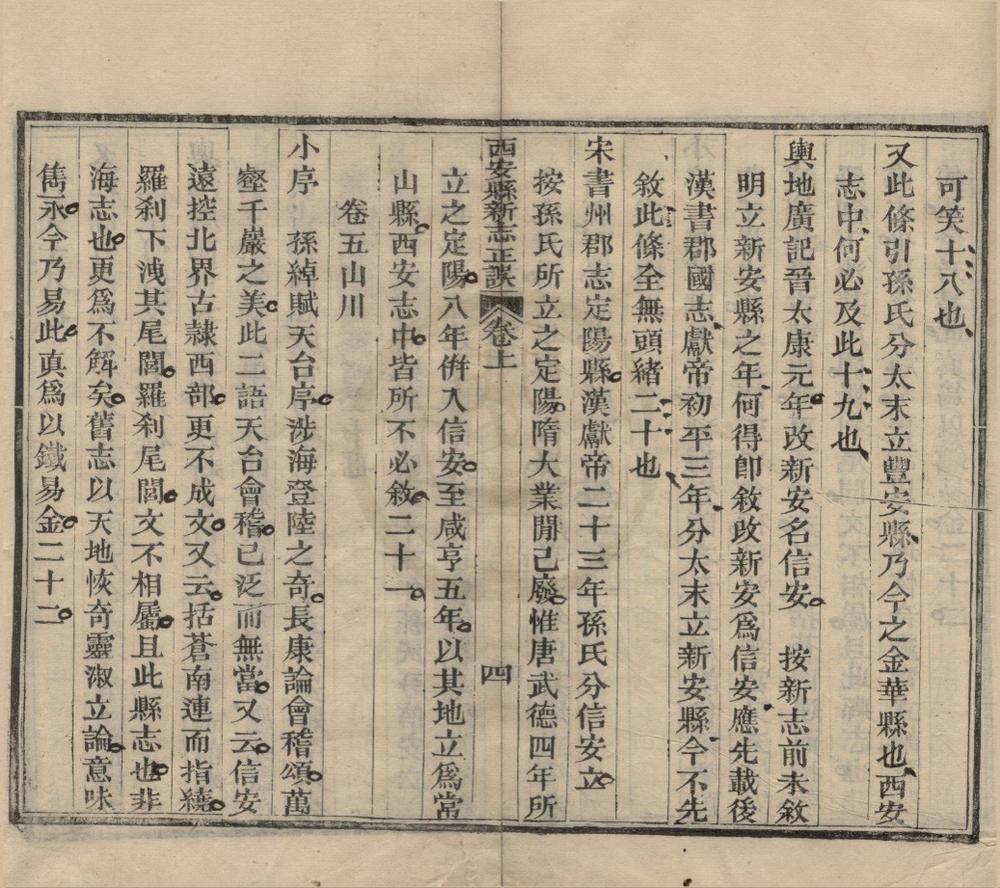 可笑十八也
又此條引孫氏分太末立豐安縣乃今之金華縣也西安
志中何必及此十九也
輿地廣記晉太康元年改新安名信安 按新志前未敘
明立新安縣之年何得卽敘改新安爲信安應先載後
漢書郡國志獻帝初平三年分太末立新安縣今不先
敘此條全無頭緒二十也
宋書州郡志定陽縣漢獻帝二十三年孫氏分信安立
按孫氏所立之定陽隋大業閒已廢惟唐武德四年所
西安縣新志正誤 卷上 四
立之定陽八年倂入信安至咸亨五年以其地立爲常
山縣西安志中皆所不必敘二十一
卷五山川
小序 孫綽賦天台序涉海登陸之奇長康論會稽頌萬
壑千巖之美此二語天台會稽已泛而無當又云信安
遠控北界古隷西部更不成文又云括蒼南連而指繞
羅刹下洩其尾閭羅刹尾閭文不相屬且此縣志也非
海志也更爲不解矣舊志以天地恢奇靈淑立論意味
雋永今乃易此眞爲以鐵易金二十二